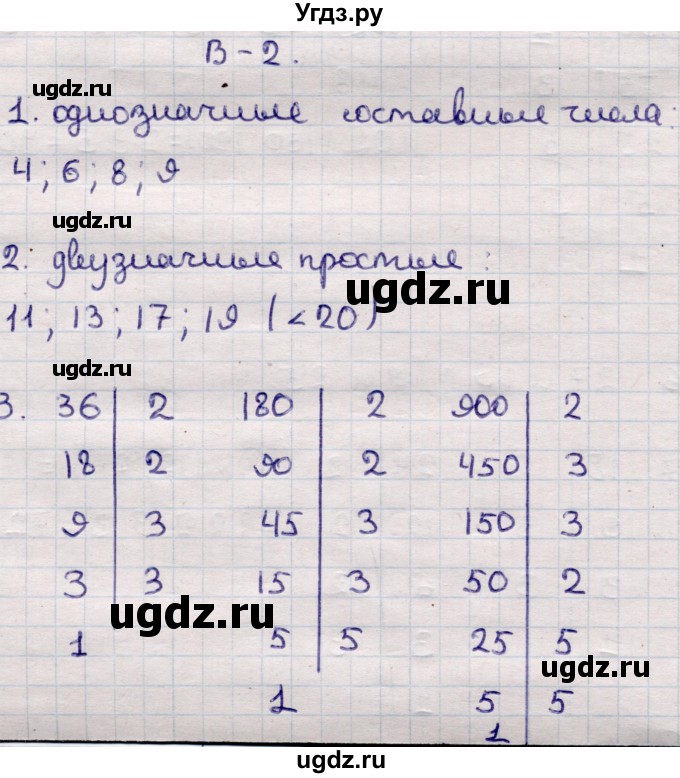 Угдз.ру
В-2.
ugdz.ru
1. однозначные составные числа:
4; 6; 8; 9
ugdz.ru
2. двузначные простые:
ugdz.ru
11; 13; 17; 19 (<20)
ugdz.ru
3. 36 | 2 180 | 2 900 | 2
18 | 2 90 | 2 450 | 3
9 | 3 45 | 3 150 | 3
3 | 3 15 | 3 50 | 2
ugdz.ru
1 5 | 5 25 | 5
ugdz.ru
1 5 | 5
1
ugdz.ru